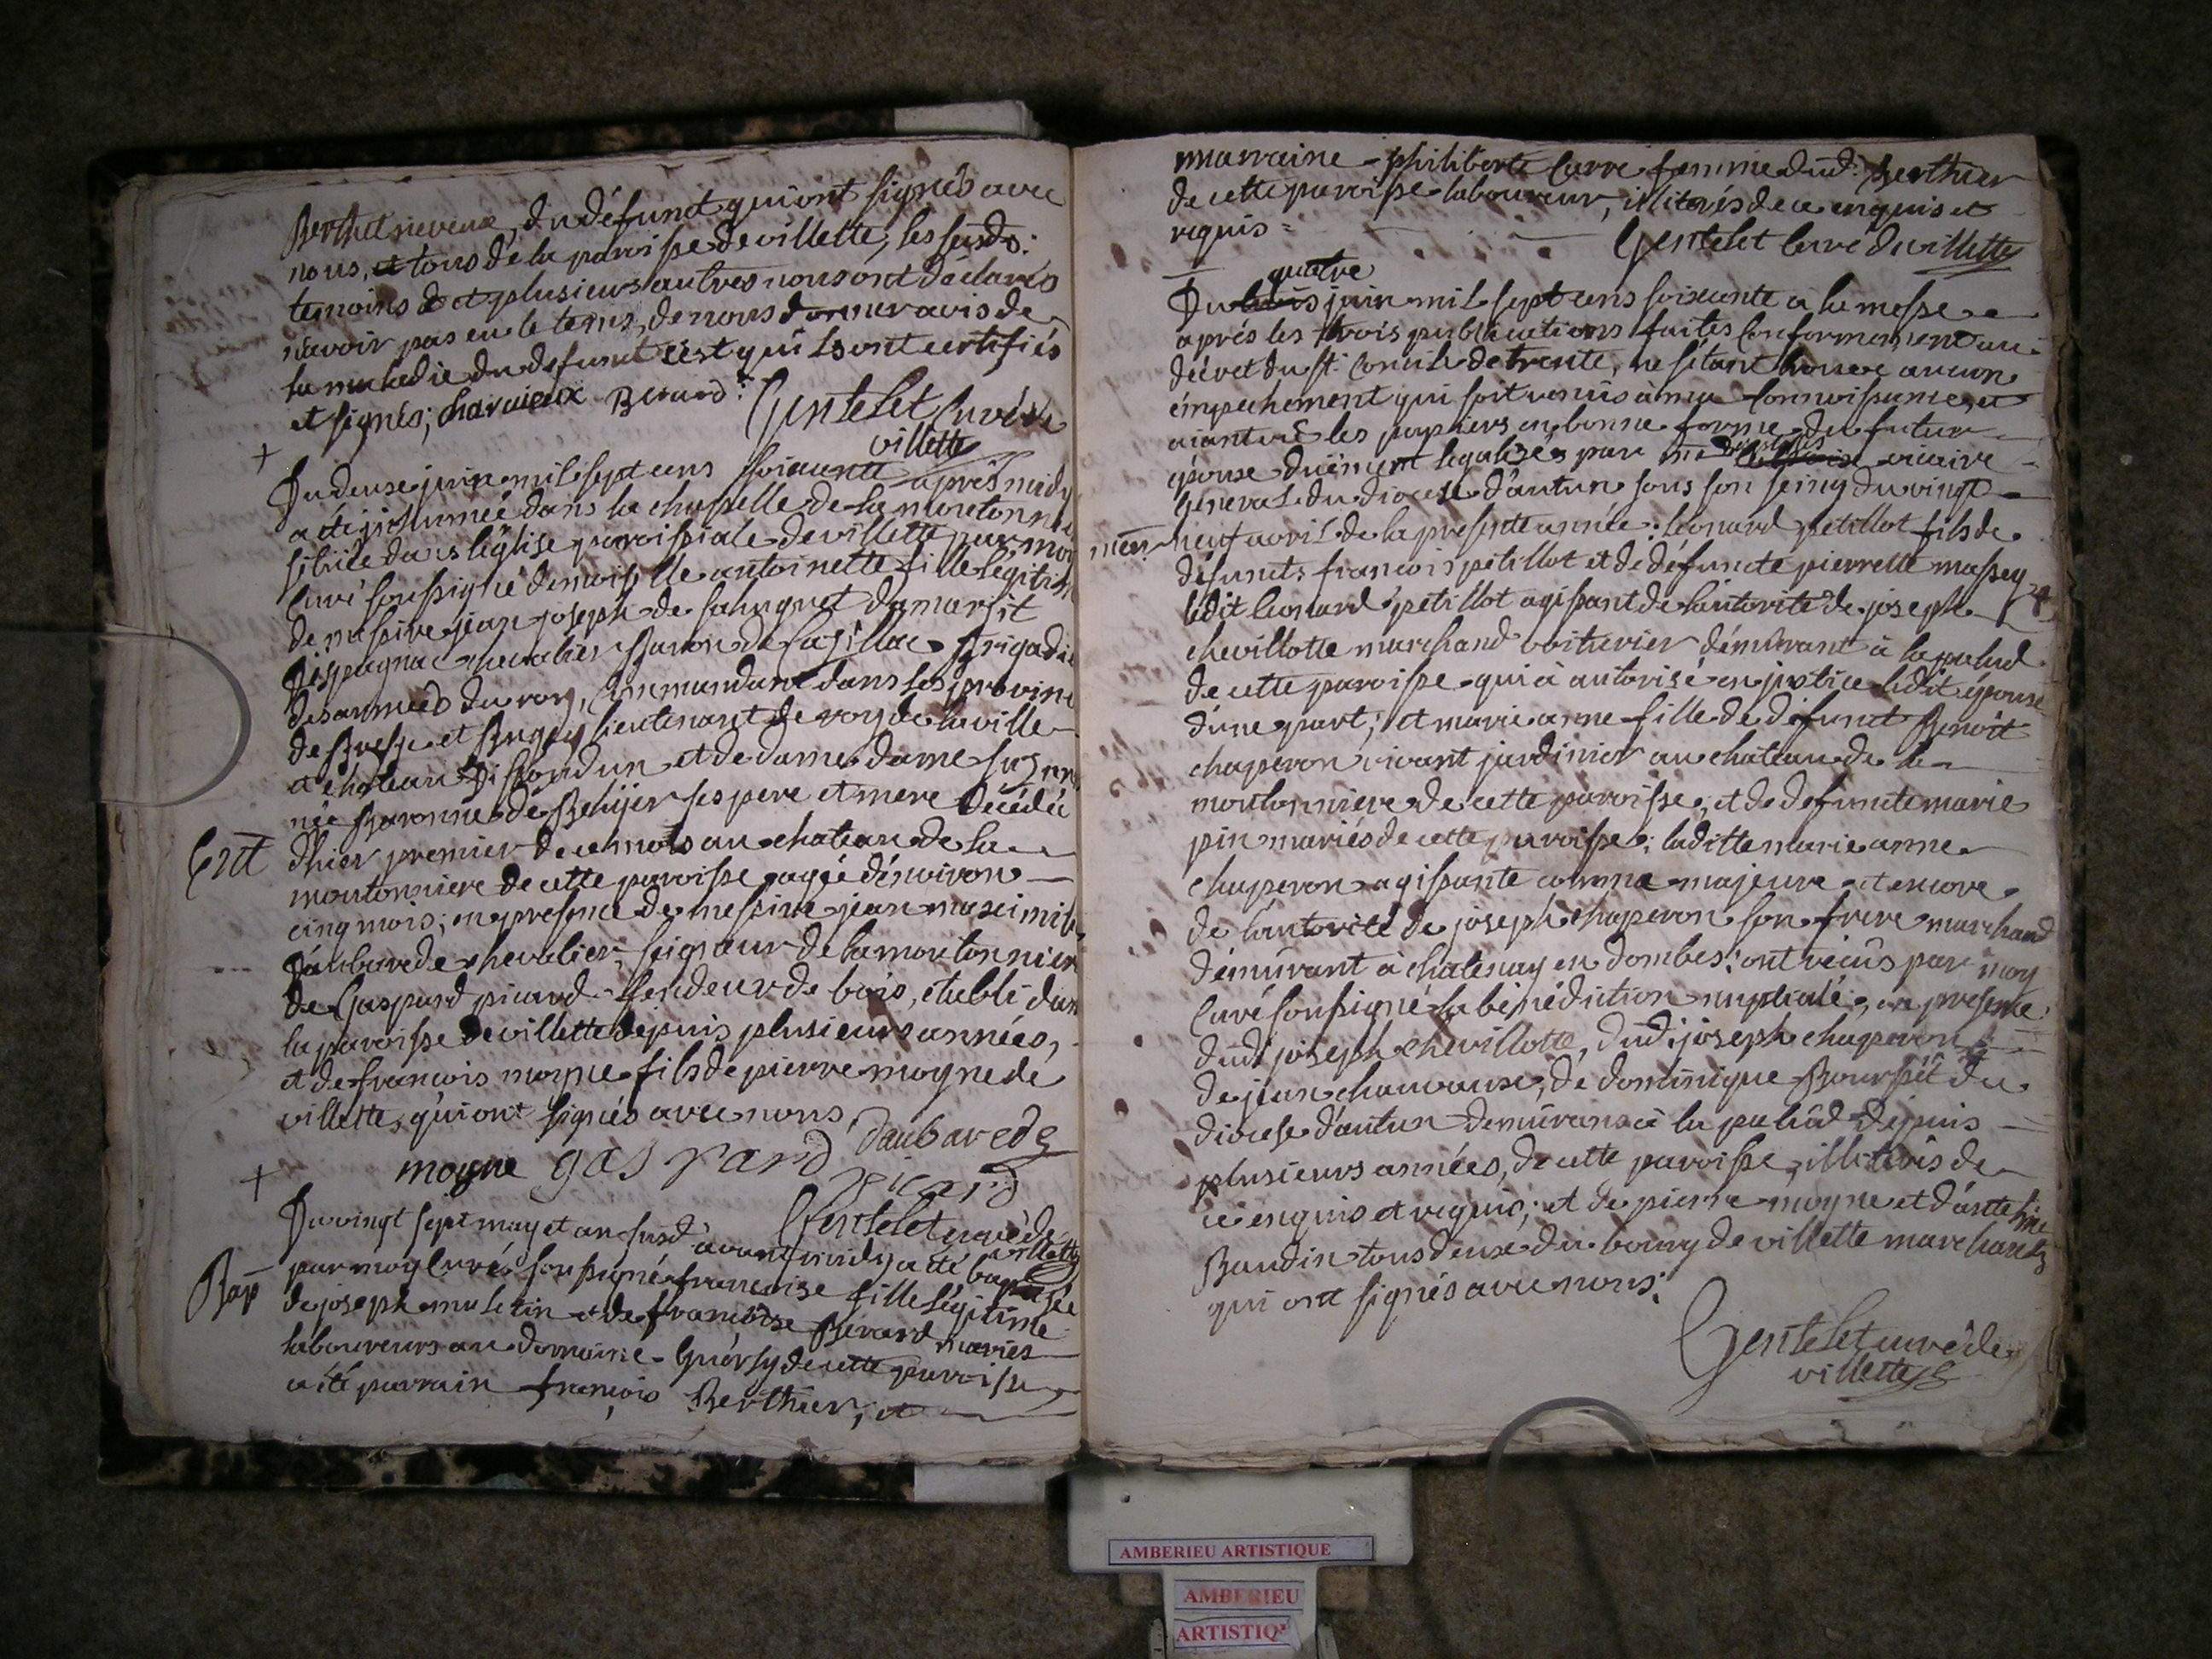 Berthet neveux, du défunct qui ont signés avec
nous, et tous de la paroisse de villette, les susds:
temoins et plusieurs autres nous ont déclarés
n'avoir pas eu le tems, de nous donner avis de
la maladie du defunct c'est qu'ils ont certifiés
et signés; charvieux Berard: Gentelet Curé de
villette
+
Du deux juin mil sept cens soixante apres midy
a été inhumée dans la chapelle de la moutonni
située dans l'église paroissiale de villette par moy
Curé soussigné demoiselle antoinette fille légitim
de messire jean joseph de sahuguet damarzit
Despagnac chevalier Baron de Cazillac Brigadie
des armées du roy, Commandant dans les provinc
de Bresse et Bugey lieutenant de roy de la ville
et chateau Dissoudun et de dame dame suzann
née Baronne de Beyer ses pere et mere décédée
Ent d'hier premier de ce mois au chateau de la
moutonniere de cette paroisse agée d'environ
cinq mois; en presence de messire jean maximili
Daubarede chevalier, seigneur de la moutonnier
de Gaspard picard fendeur de bois, établi dans
la paroisse de villette depuis plusieurs années,
et de francois moyne fils de pierre moyne de
villette, qui ont signés avec nous,
moyne gaspard picard daubarede
+
Gentelet curé de villette
Du vingt sept may et an susd: avant midy a été baptisée
Bap par moy Curé soussigné francoise fille légitime
de joseph muletin et de francoise Bérard mariés
laboureurs au domaine Guersy de cette paroisse
a été parrain françois Berthier, et
marraine philiberte Carre femme dud: Berthier
de cette paroisse laboureur, illiterés de ce enquis et
requis =
Gentelet Curé de villette
quatre
Du trois juin mil sept cens soixante a la messe
aprés les trois publications faites Conformement au
décret du st: Concile de trente, ne s'étant trouvé aucun
émpechement qui soit venus à ma Connoissance, et
aiant vû les papiers en bonne forme du futur
epoux duëment legalisés par mr vicaire
Géneral du diocese d'autun sous son seing du vingt
mar: neuf avril de la presente année: leonard petillot fils de
défunct françois petillot et de défuncte pierrette massey
ledit leonard petillot agissant de l'autorité de joseph
chevillotte marchand voiturier démûrant à la palud
de cette paroisse qui à autorisé en justice ledit époux
d'une part; et marie anne fille de défunct Benoit
chaperon vivant jardinier au chateau de la
moutonniere de cette paroisse, et de defuncte marie
pin mariés de cette paroisse; laditte marie anne
chaperon agissante comme majeure et encore
de l'autorité de joseph chaperon son frere marchand
démûrant à chatenay en dombes: ont reçûs par moy
Curé soussigné la bénédiction nuptiale, en presence
dud: joseph chevillotte, dud: joseph chaperon
de jean chauvause, de dominique Boursët du
diocese d'autun demûrans à la palûd depuis
plusieurs années, de cette paroisse, illiterés de
ce enquis et requis; et de pierre moyne et d'antelme
Baudin tous deux du bourg de villette marchands
qui ont signés avec nous:
Gentelet curé de
villette
AMBERIEU ARTISTIQUE
AMBERIEU
ARTISTIQ